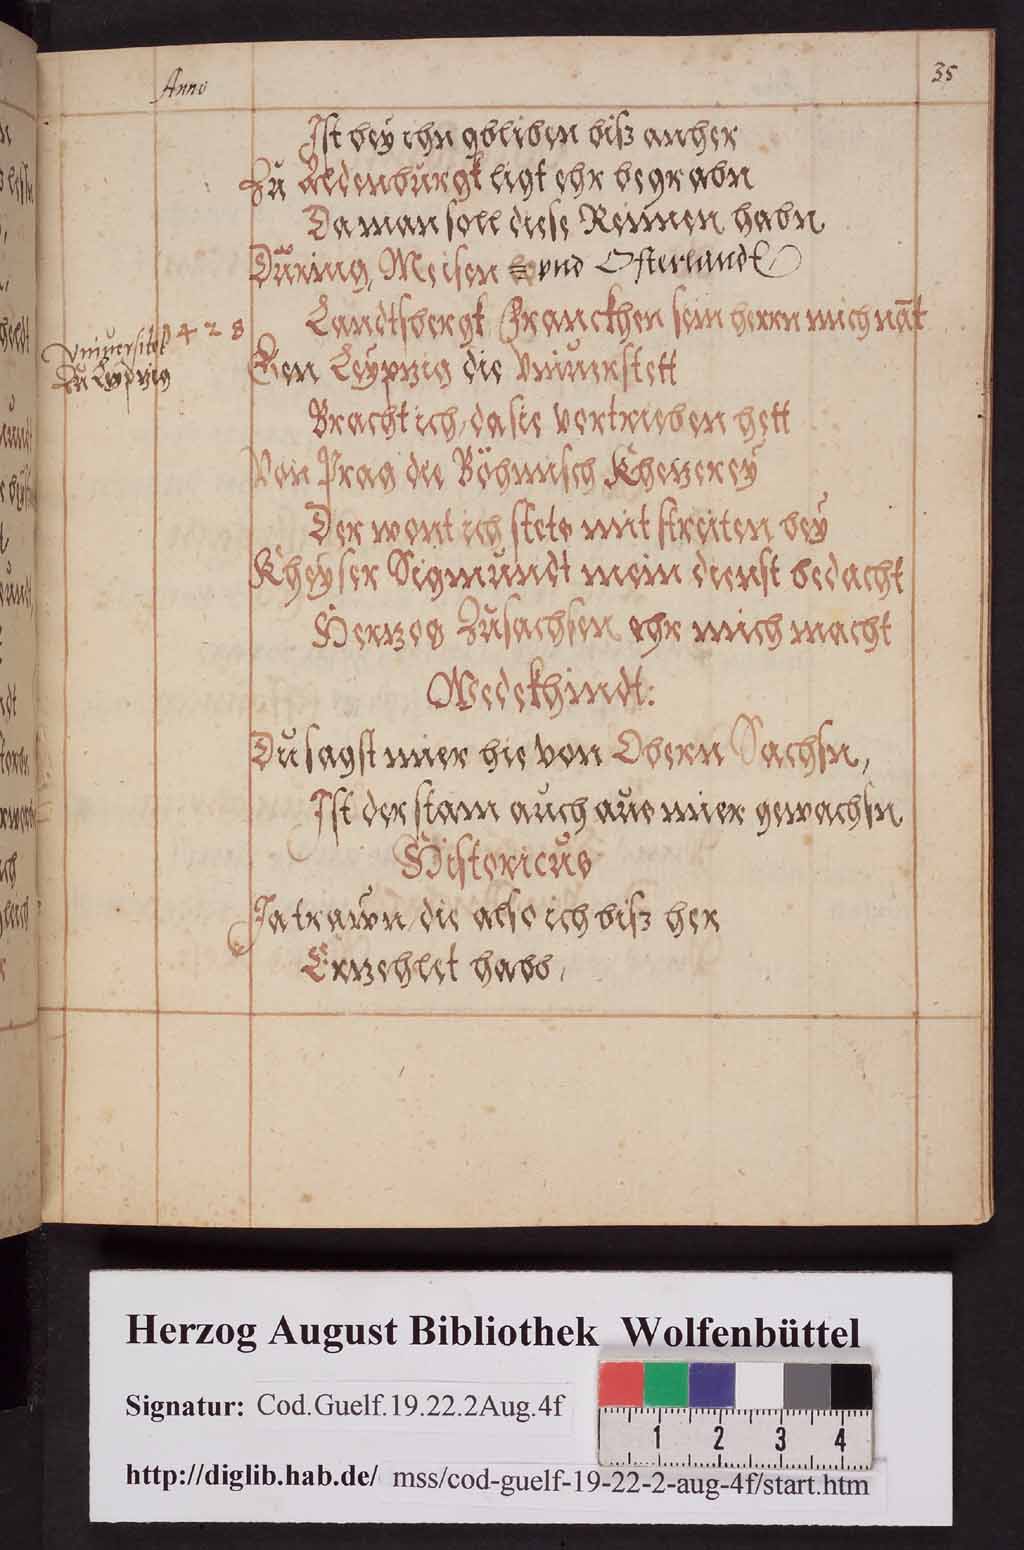 Anno
35
Ist bey ihn gbliben biß anher
Zu Aldenburgk ligt ehr begrabn
Da man soll diese Reimen habn
Düring, Meisen = vnd Osterlandt
Landtsbergk Franckhen sein herrn mich nāt
Vniuersitet 428
Zu Leypzig
Gen Leypzig die Vniuerstett
Bracht ich, da sie vertrieben hett
Von Prag die Böhmisch Khetzerey
Der wont ich stets mit streiten bey
Kheyser Sigmundt mein dienst bedacht
Hertzog Zusachsen ehr mich macht
Wedekhindt:
Du sagst mier hie von Obern Sachsn,
Ist der stam auch aus mier gewachsn
Historicus
Ja trawn, die also ich biß her
Ertzehlet habb,
Herzog August Bibliothek Wolfenbüttel
Signatur: Cod.Guelf.19.22.2Aug.4f
1 2 3 4
http://diglib.hab.de/ mss/cod-guelf-19-22-2-aug-4f/start.htm